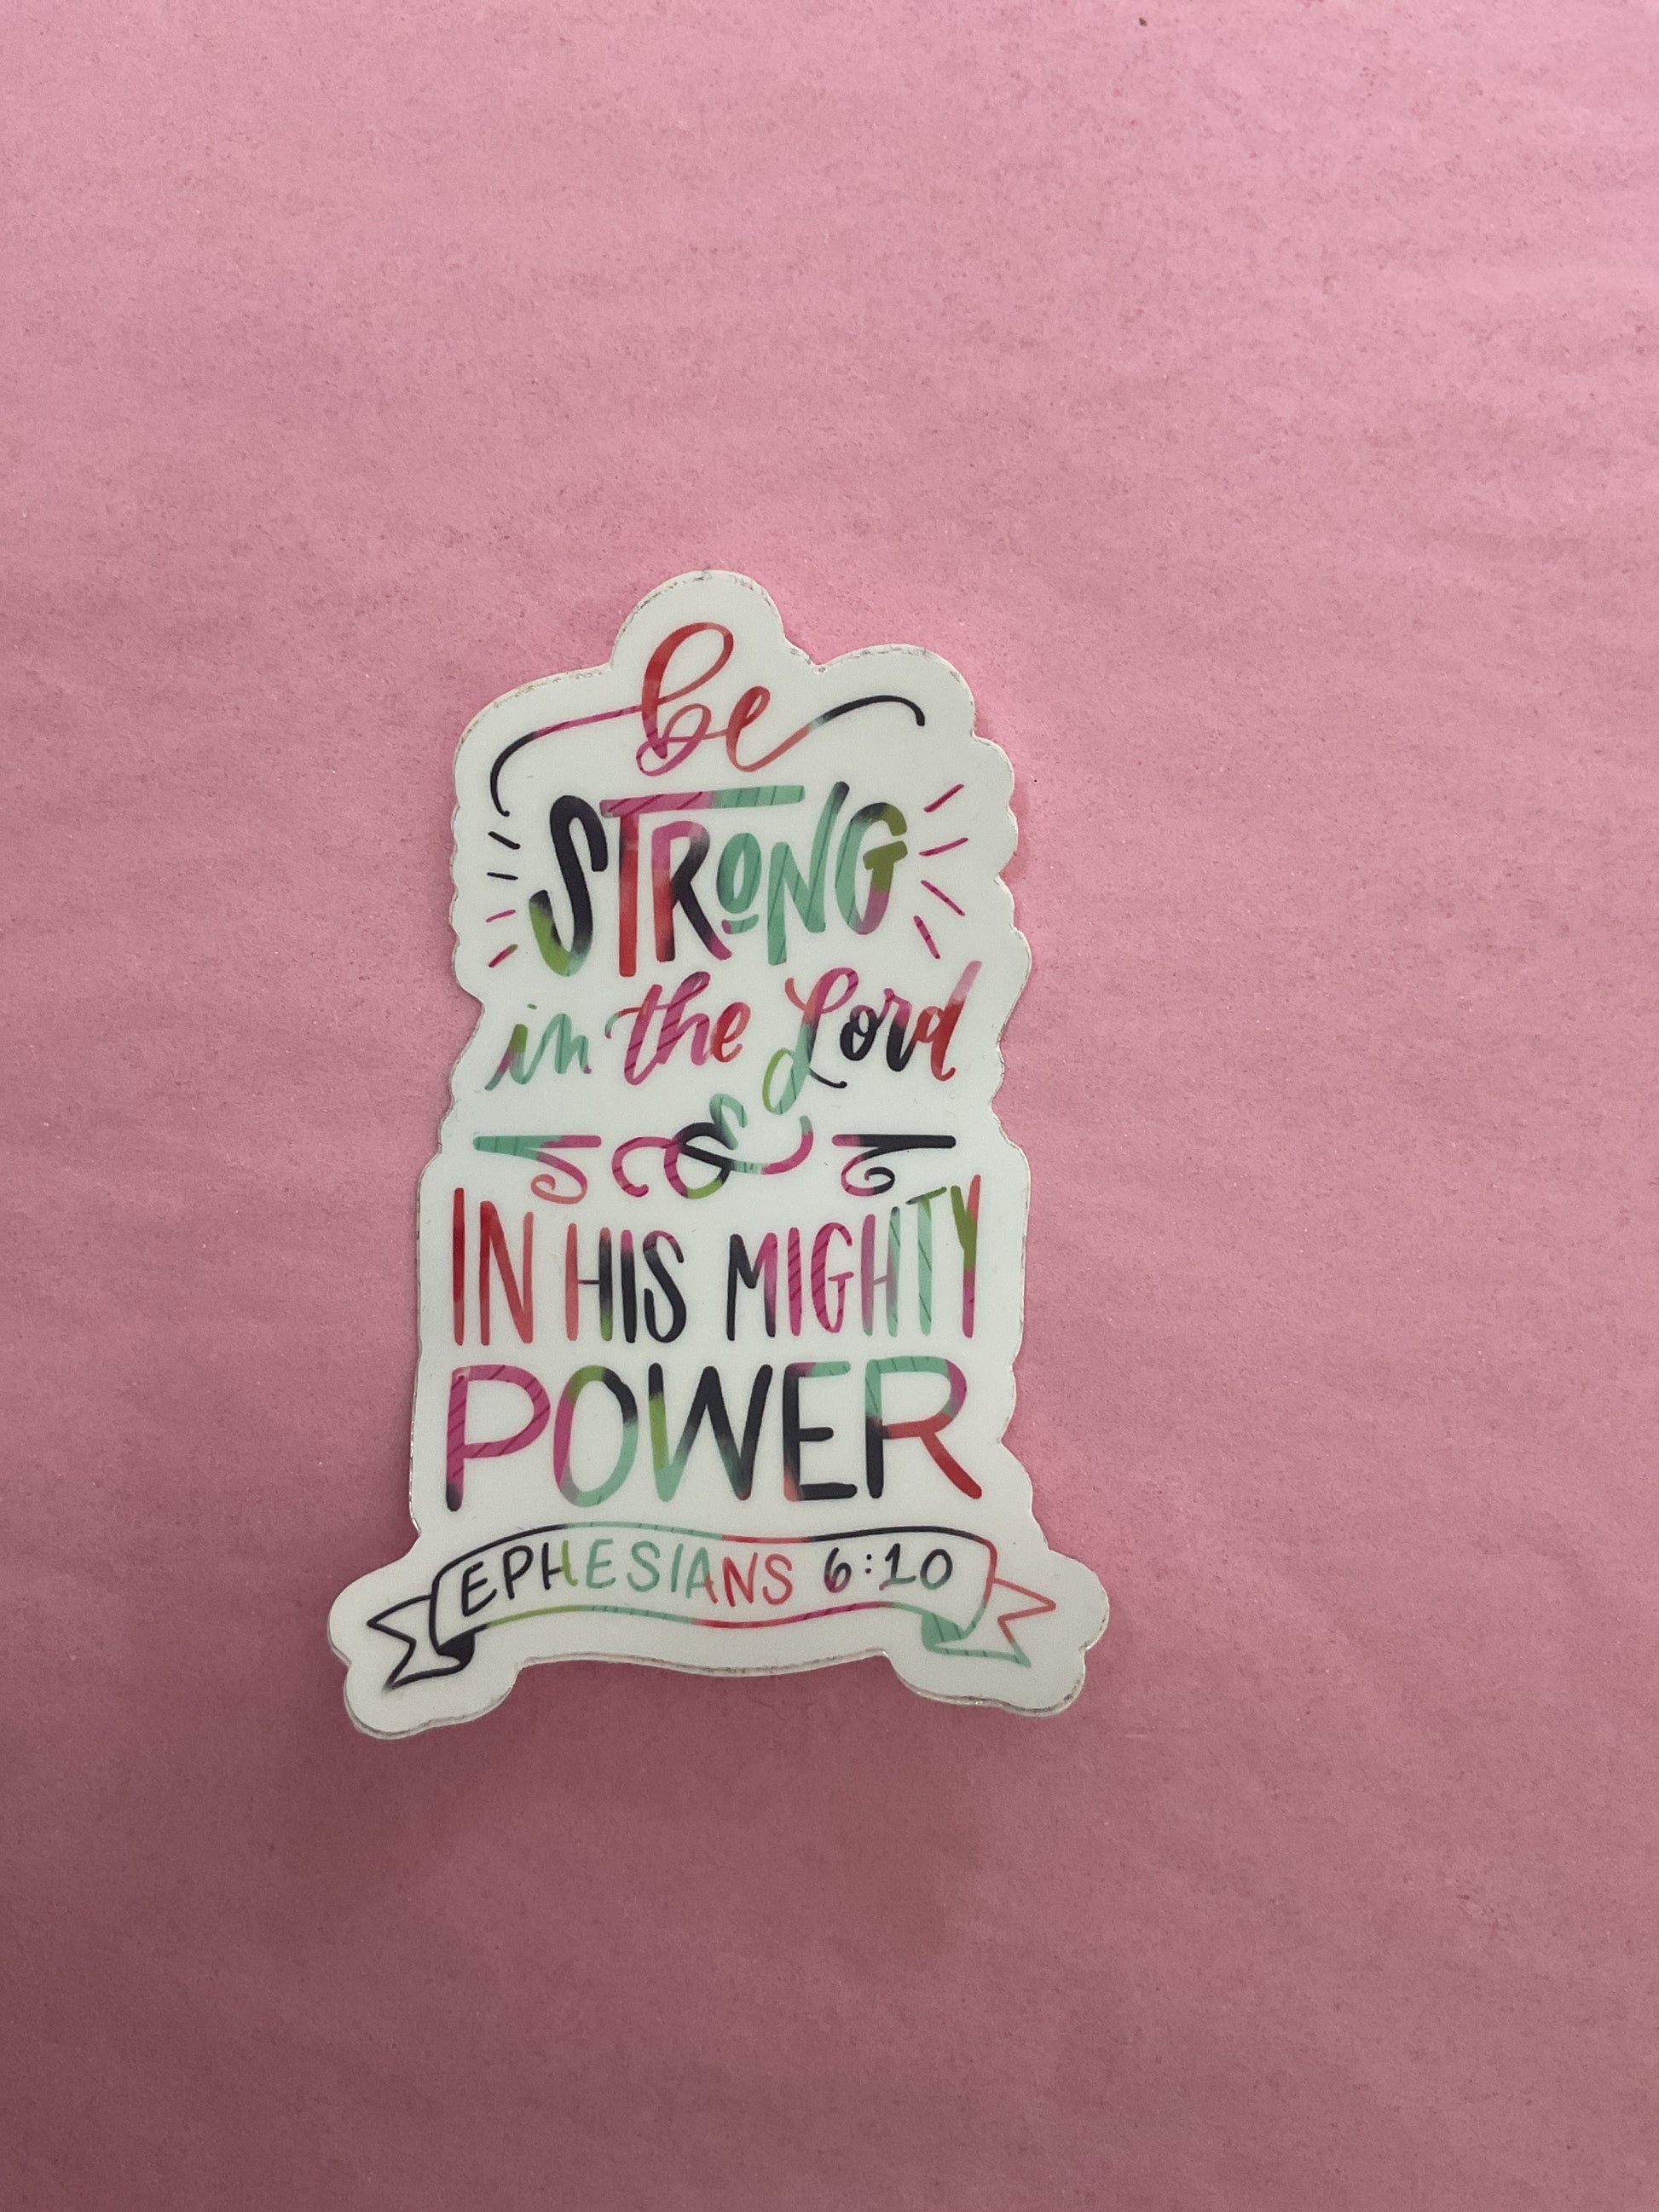 be
STRONG
in the Lord
&
IN HIS MIGHTY
POWER
EPHESIANS 6:10